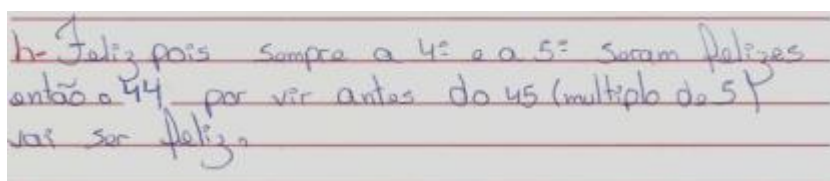 h- Feliz pois sempre a 4ª e a 5ª seram felizes
então o 44 por vir antes do 45 (multiplo de 5)
vai ser feliz.